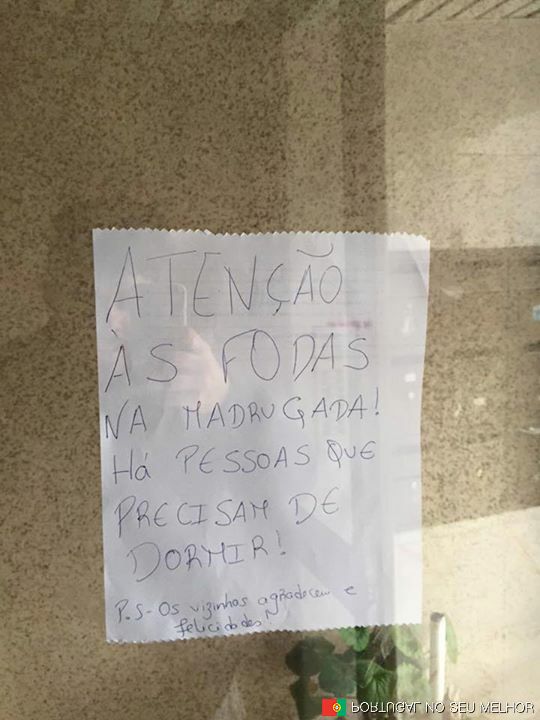 ATENÇÃO
ÀS FODAS
NA MADRUGADA!
HÁ PESSOAS QUE
PRECISAM DE
DORMIR!
P.S- Os vizinhos agradecem e
felicidades!
PORTUGAL NO SEU MELHOR